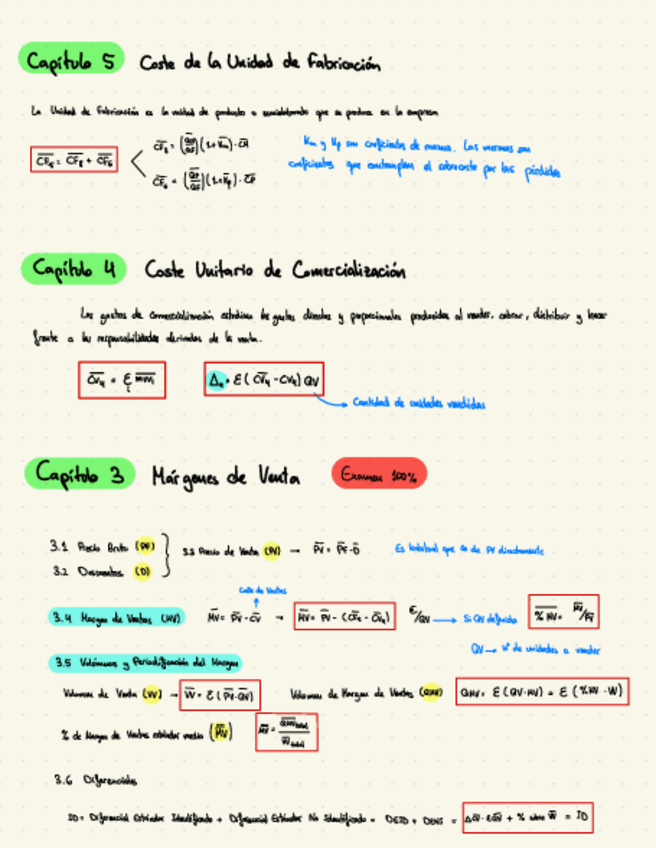 Capítulo 5 Coste de la Unidad de Fabricación
La Unidad de Fabricación es la unidad de producto o semielaborado que se produce en la empresa
Km y Kp son coeficientes de merma. Las mermas son
coeficientes que contemplan el sobrecoste por las pérdidas
Capítulo 4 Coste Unitario de Comercialización
Los gastos de comercialización estudian los gastos directos y proporcionales producidos al vender, cobrar, distribuir y hacer
frente a las responsabilidades derivadas de la venta.
Cantidad de unidades vendidas
Capítulo 3 Márgenes de Venta Examen 100%
3.1 Precio Bruto (PF)
3.2 Descuentos (D)
3.3 Precio de Venta (PV) → P̅V̅ = P̅F̅ - D̅
Es habitual que se de PV directamente
Coste de Ventas
3.4 Margen de Ventas (MV) M̅V̅ = P̅V̅ - C̅V̅ →
€/QV → Si QV definido
QV → Nº de unidades a vender
3.5 Volúmenes y Periodificación del Margen
Volumen de Venta (VV) → V̅V̅ = Σ(P̅V̅·Q̅V̅) Volumen de Margen de Ventas (QMV) QMV = Σ(QV·MV) = Σ(%MV·W)
% de Margen de Ventas estándar medio (M̅V̅)
3.6 Diferenciales
ID = Diferencial Estándar Identificado + Diferencial Estándar No Identificado = DEID + DENI =